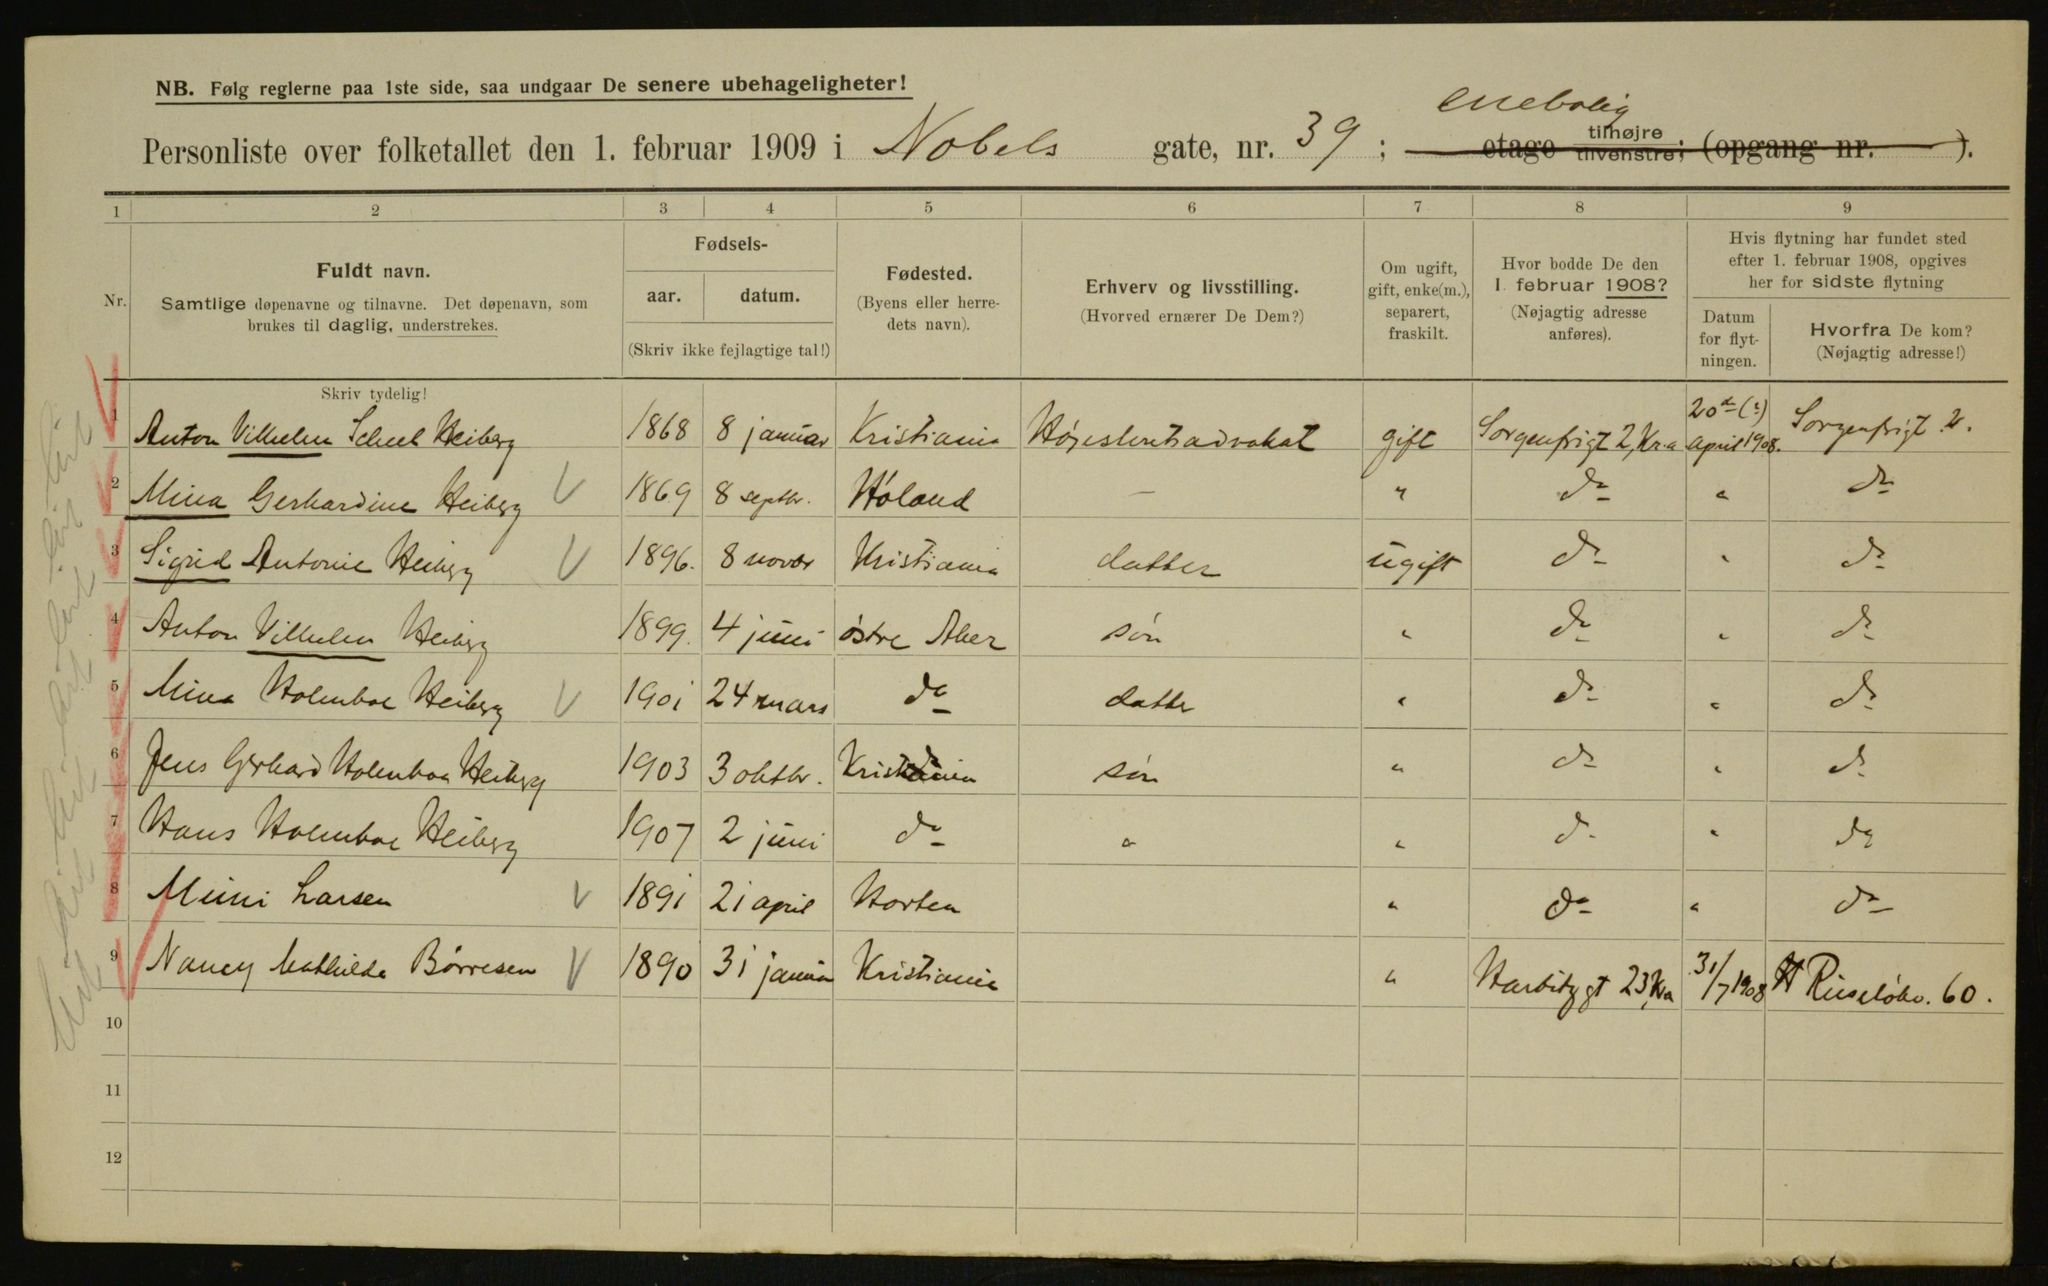 NB. Følg reglerne paa 1ste side, saa undgaar De senere ubehageligheter!
enebolig
Personliste over folketallet den 1. februar 1909 i Nobels gate, nr. 39; etage tilhøjre tilvenstre; (opgang nr. ).
1 2 3 4 5 6 7 8 9
Nr.
Fuldt navn.
Samtlige døpenavne og tilnavne. Det døpenavn, som
brukes til daglig, understrekes.
Skriv tydelig!
Fødsels-
aar. datum.
(Skriv ikke fejlagtige tal!)
Fødested.
(Byens eller herre-
dets navn).
Erhverv og livsstilling.
(Hvorved ernærer De Dem?)
Om ugift,
gift, enke(m.),
separert,
fraskilt.
Hvor bodde De den
1. februar 1908?
(Nøjagtig adresse
anføres).
Hvis flytning har fundet sted
efter 1. februar 1908, opgives
her for sidste flytning
Datum
for flyt-
ningen.
Hvorfra De kom?
(Nøjagtig adresse!)
1 Anton Vilhelm Scheel Heiberg 1868 8 januar Kristiania Højesteretsadvokat gift Sorgenfrigt 2, Kra 20de (?) april 1908. Sorgenfrigt 2.
2 Mina Gerhardine Heiberg 1869 8 septbr. Høland — " do " do
3 Sigrid Antonie Heiberg 1896. 8 novbr Kristiania datter ugift do " do
4 Anton Vilhelm Heiberg 1899. 4 juni østre Aker søn " do " do
5 Mina Holmboe Heiberg 1901 24 mars do datter " do " do
6 Jens Gerhard Holmboe Heiberg 1903 3 oktbr. Kristiania søn " do " do
7 Hans Holmboe Heiberg 1907 2 juni do " " do " do
8 Mimi Larsen 1891 21 april Horten " do " do
9 Nancy Mathilde Børresen 1890 31 januar Kristiania " Harbitzgt 23, Kra 31/7 1908 Ruseløkv. 60.
10
11
12